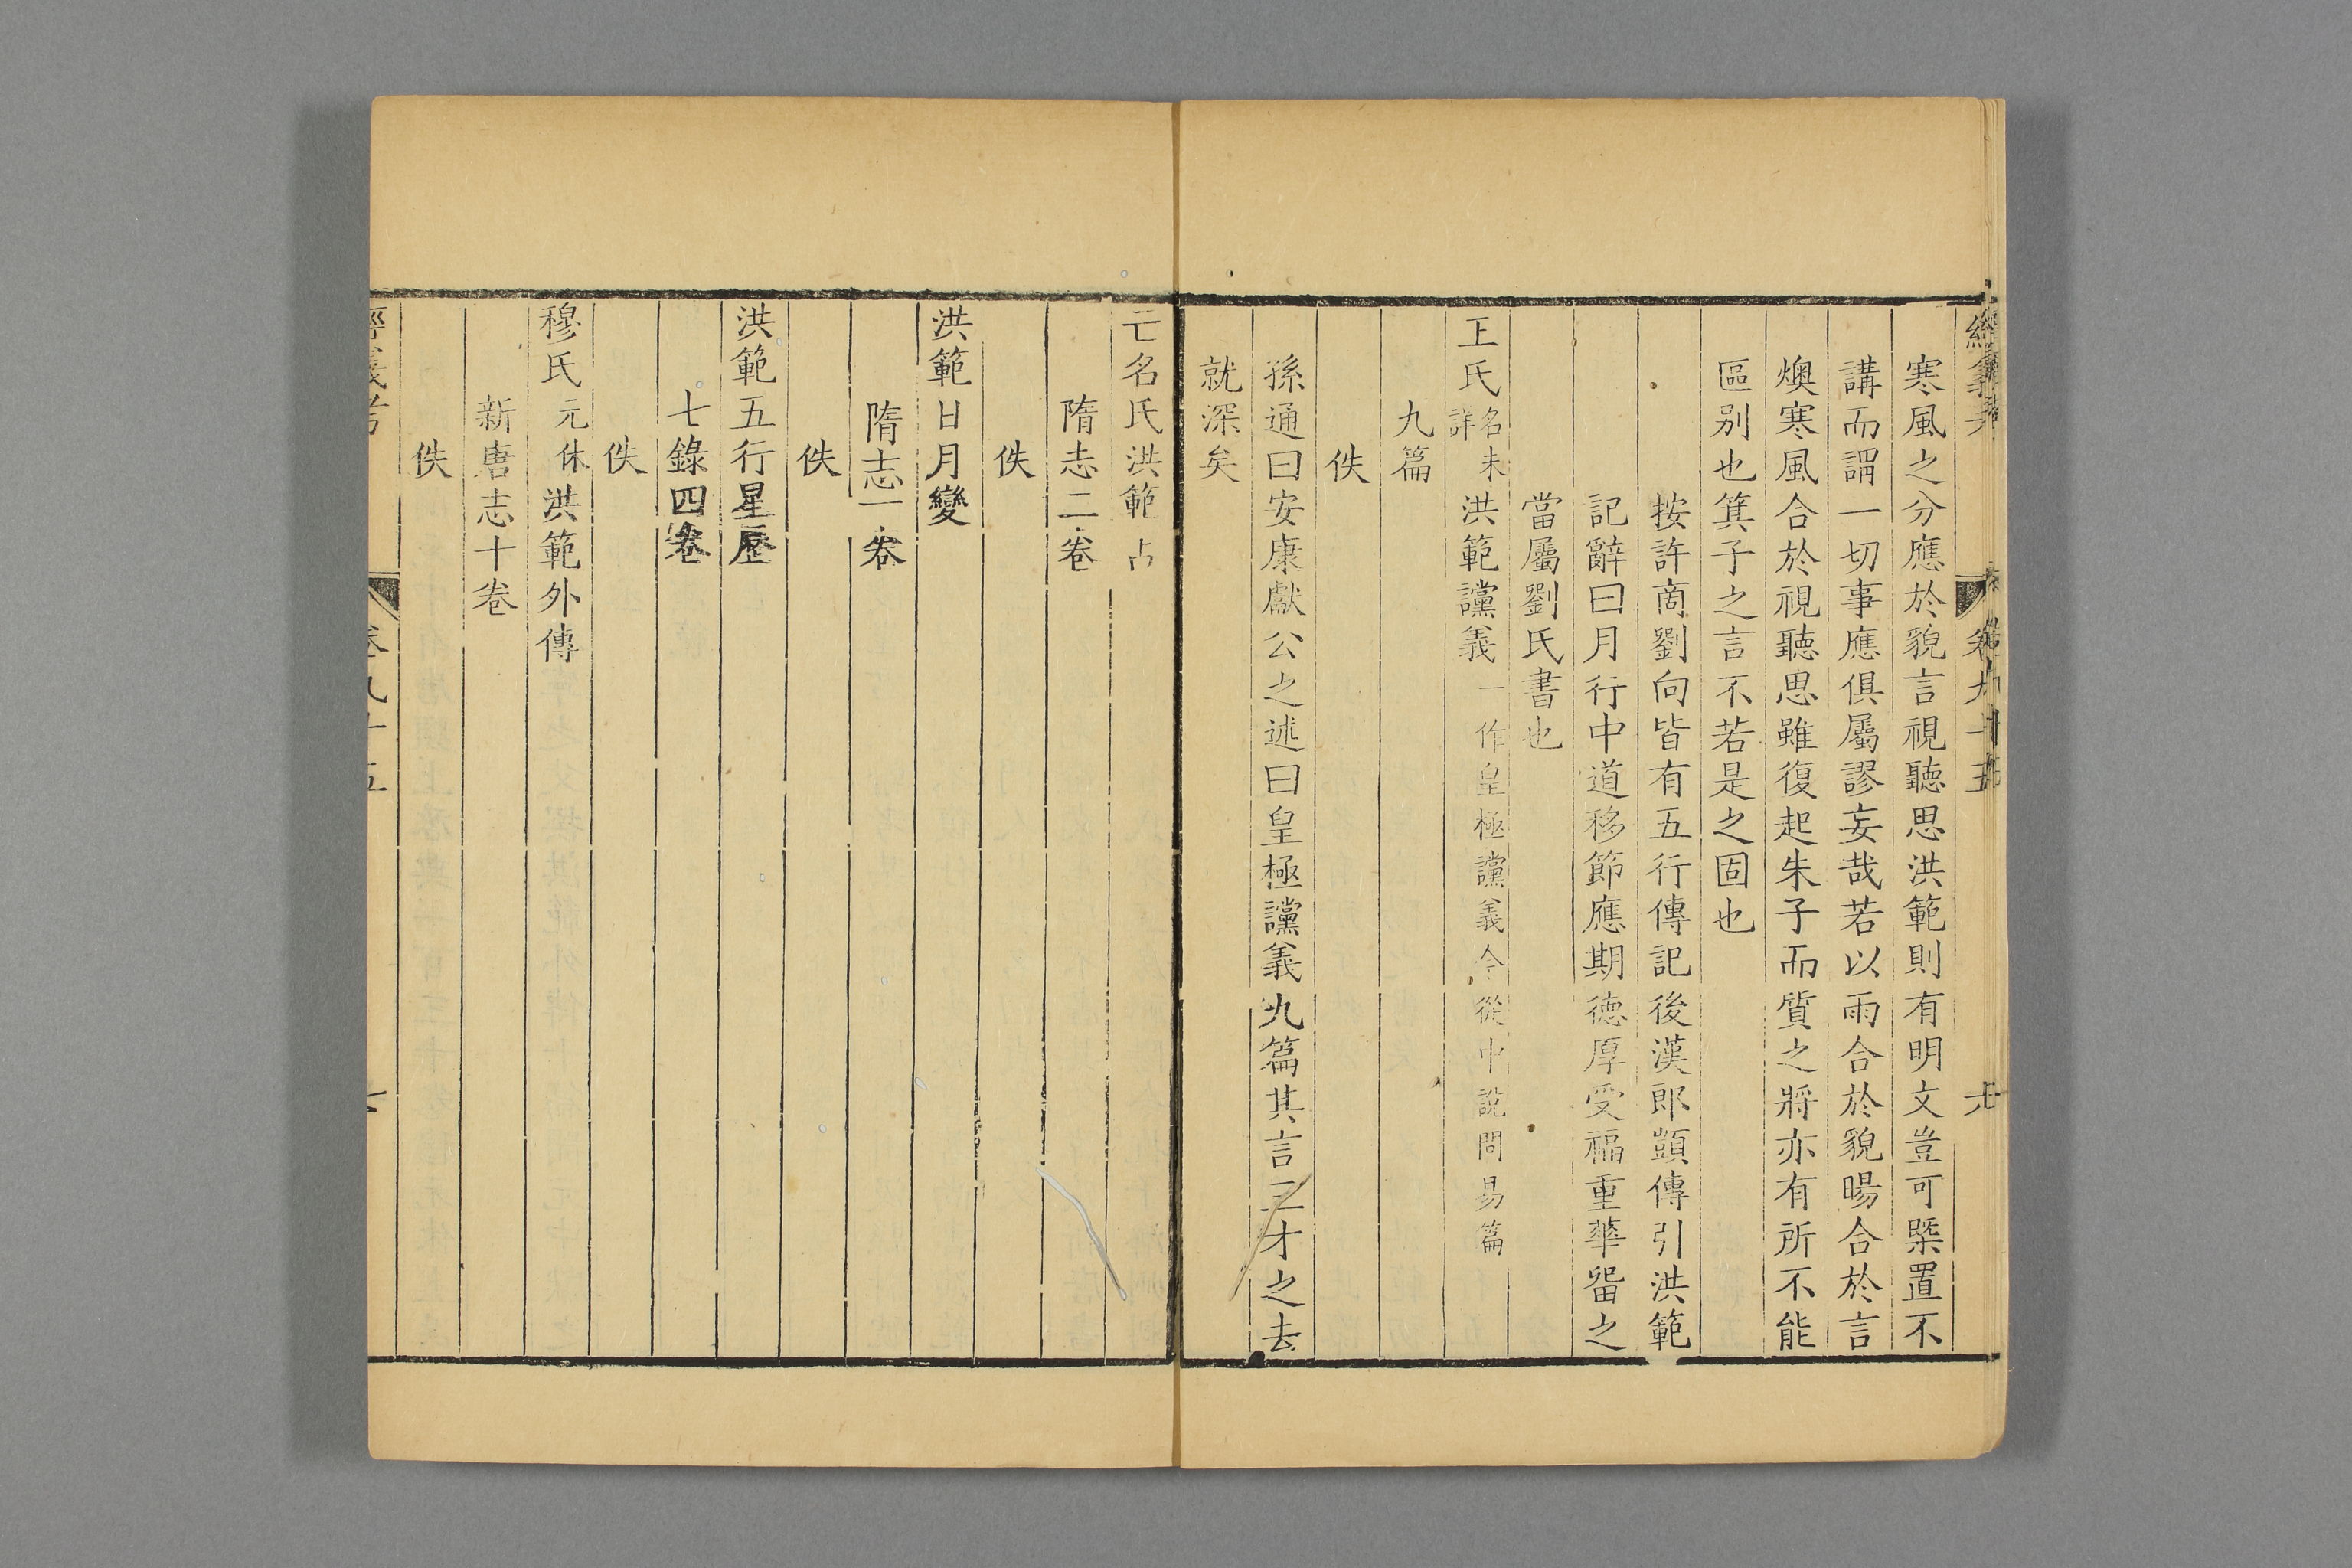 寒風之分應於貌言視聽思洪範則有明文豈可槩置不
講而謂一切事應俱屬謬妄哉若以雨合於貌暘合於言
燠寒風合於視聽思雖復起朱子而質之將亦有所不能
區别也箕子之言不若是之固也
按許商劉向皆有五行傳記後漢郎顗傳引洪範
記辭曰月行中道移節應期德厚受福重華畱之
當屬劉氏書也
王氏名未詳洪範讜義一作皇極讜義今從中說問易篇
九篇
佚
孫通曰安康獻公之述曰皇極讜義九篇其言三才之去
就深矣
亡名氏洪範占
隋志二卷
佚
洪範日月變
隋志一卷
佚
洪範五行星歷
七錄四卷
佚
穆氏元休洪範外傳
新唐志十卷
佚
經義考
卷九十五